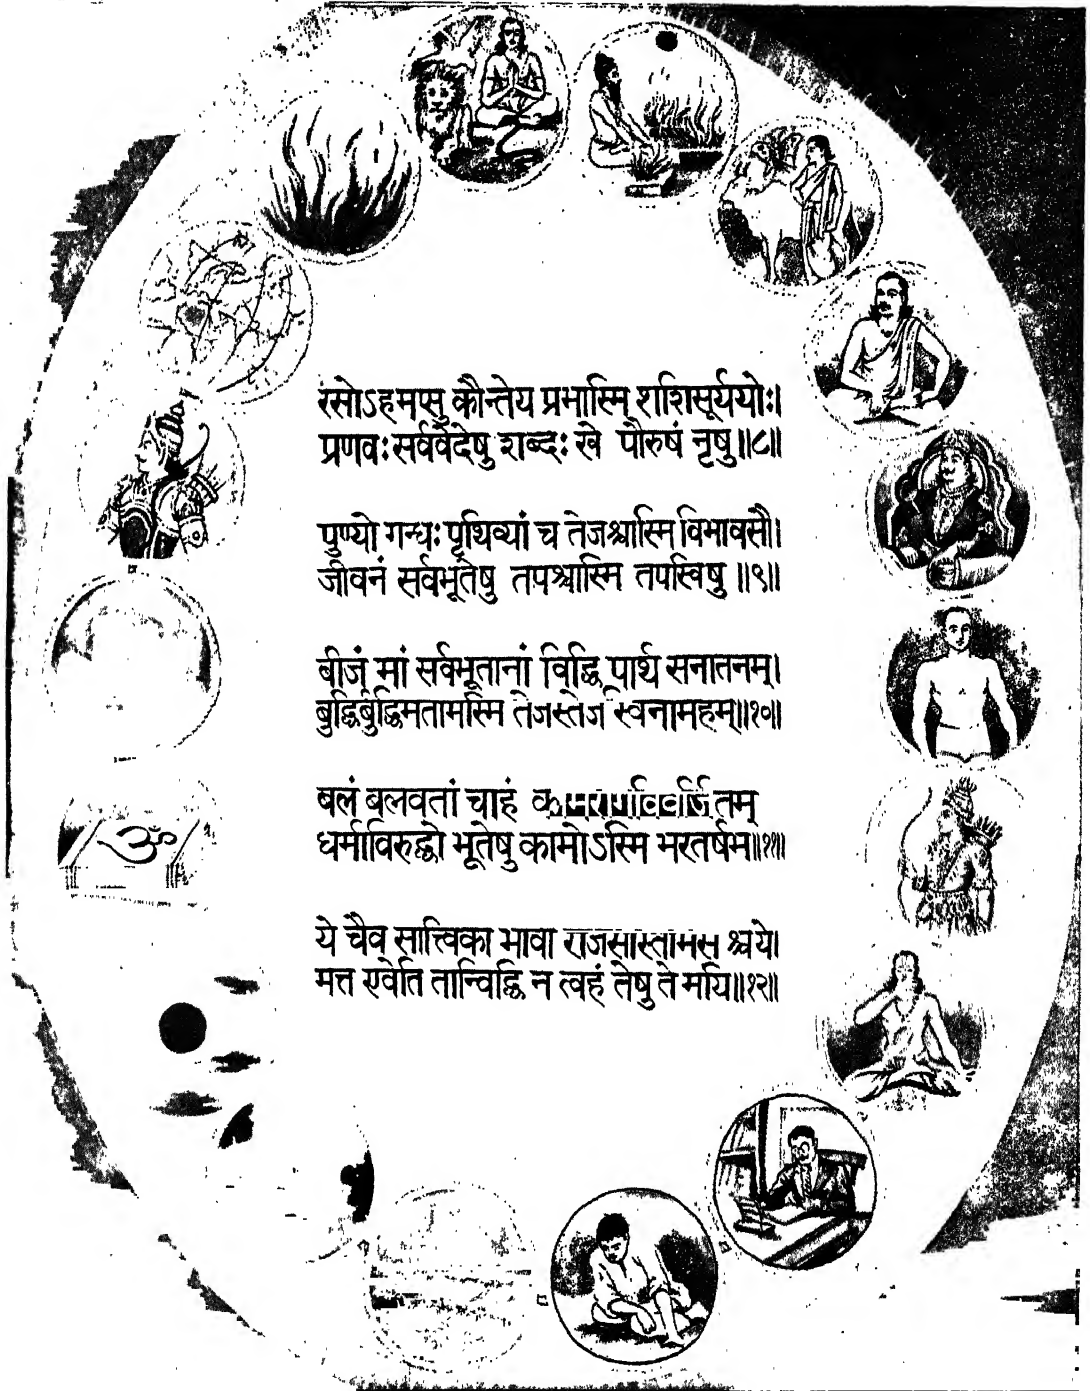 रसोऽहमप्सु कौन्तेय प्रभास्मि शशिसूर्ययोः।
प्रणवः सर्ववेदेषु शब्दः खे पौरुषं नृषु॥८॥
पुण्यो गन्धः पृथिव्यां च तेजश्चास्मि विभावसौ।
जीवनं सर्वभूतेषु तपश्चास्मि तपस्विषु॥९॥
बीजं मां सर्वभूतानां विद्धि पार्थ सनातनम्।
बुद्धिर्बुद्धिमतामस्मि तेजस्तेजस्विनामहम्॥१०॥
बलं बलवतां चाहं कामरागविवर्जितम्
धर्माविरुद्धो भूतेषु कामोऽस्मि भरतर्षभ॥११॥
ये चैव सात्त्विका भावा राजसास्तामसाश्चये।
मत्त एवेति तान्विद्धि न त्वहं तेषु ते मयि॥१२॥
ॐ